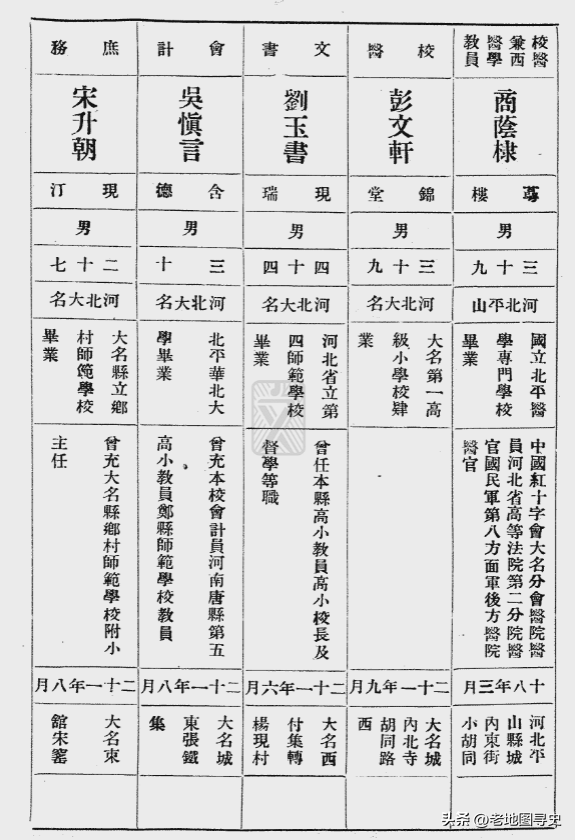 校醫
兼西
醫學
教員
商蔭棣
蕚樓
男
三十九
河北平山
國立北平醫
學專門學校
畢業
中國紅十字會大名分會醫院醫
員河北省高等法院第二分院醫
官國民軍第八方面軍後方醫院
醫官
十八年三月
河北平
山縣城
內東街
小胡同
校醫
彭文軒
錦堂
男
三十九
河北大名
大名第一高
級小學校肄
業
二十一年九月
大名城
內北寺
胡同路
西
文書
劉玉書
現瑞
男
四十四
河北大名
河北省立第
四師範學校
畢業
曾任本縣高小教員高小校長及
督學等職
二十一年六月
大名西
付集轉
楊現村
會計
吳愼言
含德
男
三十
河北大名
北平華北大
學畢業
曾充本校會計員河南唐縣第五
高小教員鄭縣師範學校教員
二十一年八月
大名城
東張鐵
集
庶務
宋升朝
現汀
男
二十七
河北大名
大名縣立鄉
村師範學校
畢業
曾充大名縣鄉村師範學校附小
主任
二十一年八月
大名東
舘宋窰
头条 @老地图寻史